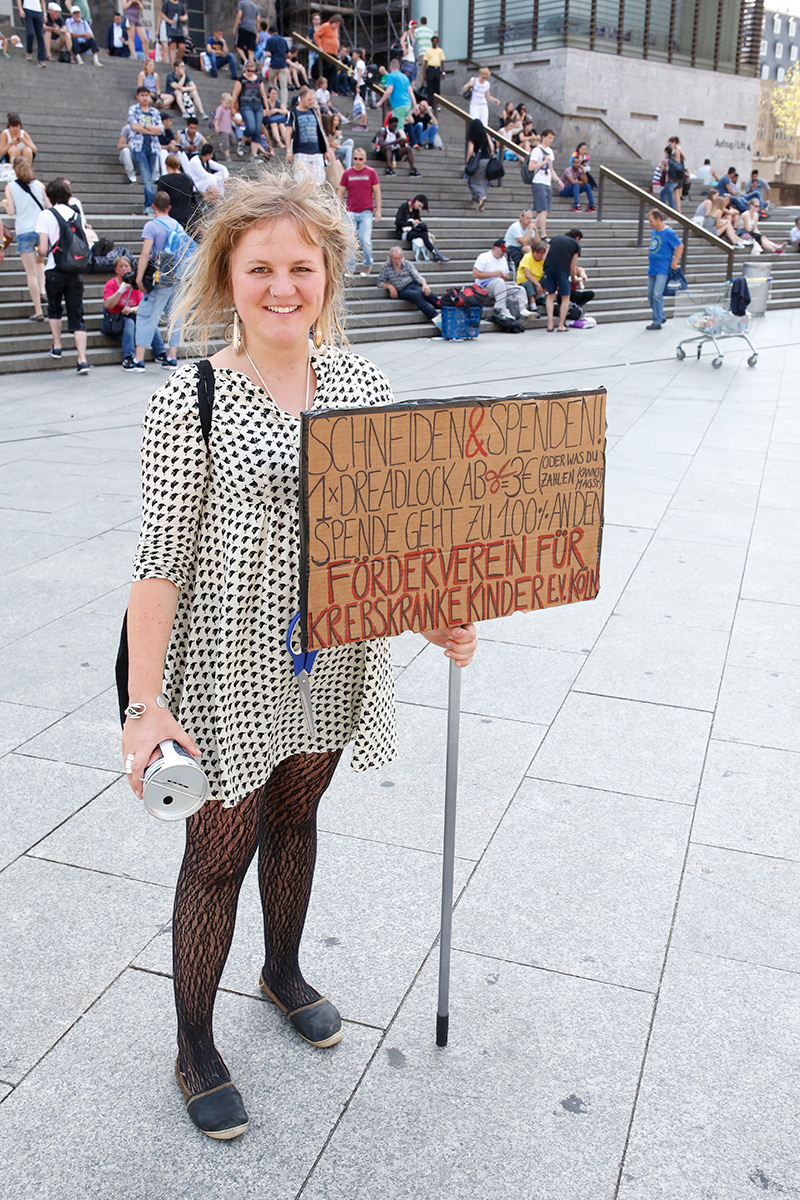 SCHNEIDEN & SPENDEN!
1x DREADLOCK AB ✂ = 3€ (ODER WAS DU ZAHLEN KANNST/MAGST)
SPENDE GEHT ZU 100% AN DEN
FÖRDERVEREIN FÜR
KREBSKRANKE KINDER E.V. KÖLN
Aufzug/Lift